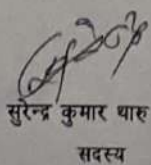 सुरेन्द्र कुमार थारु
सदस्य